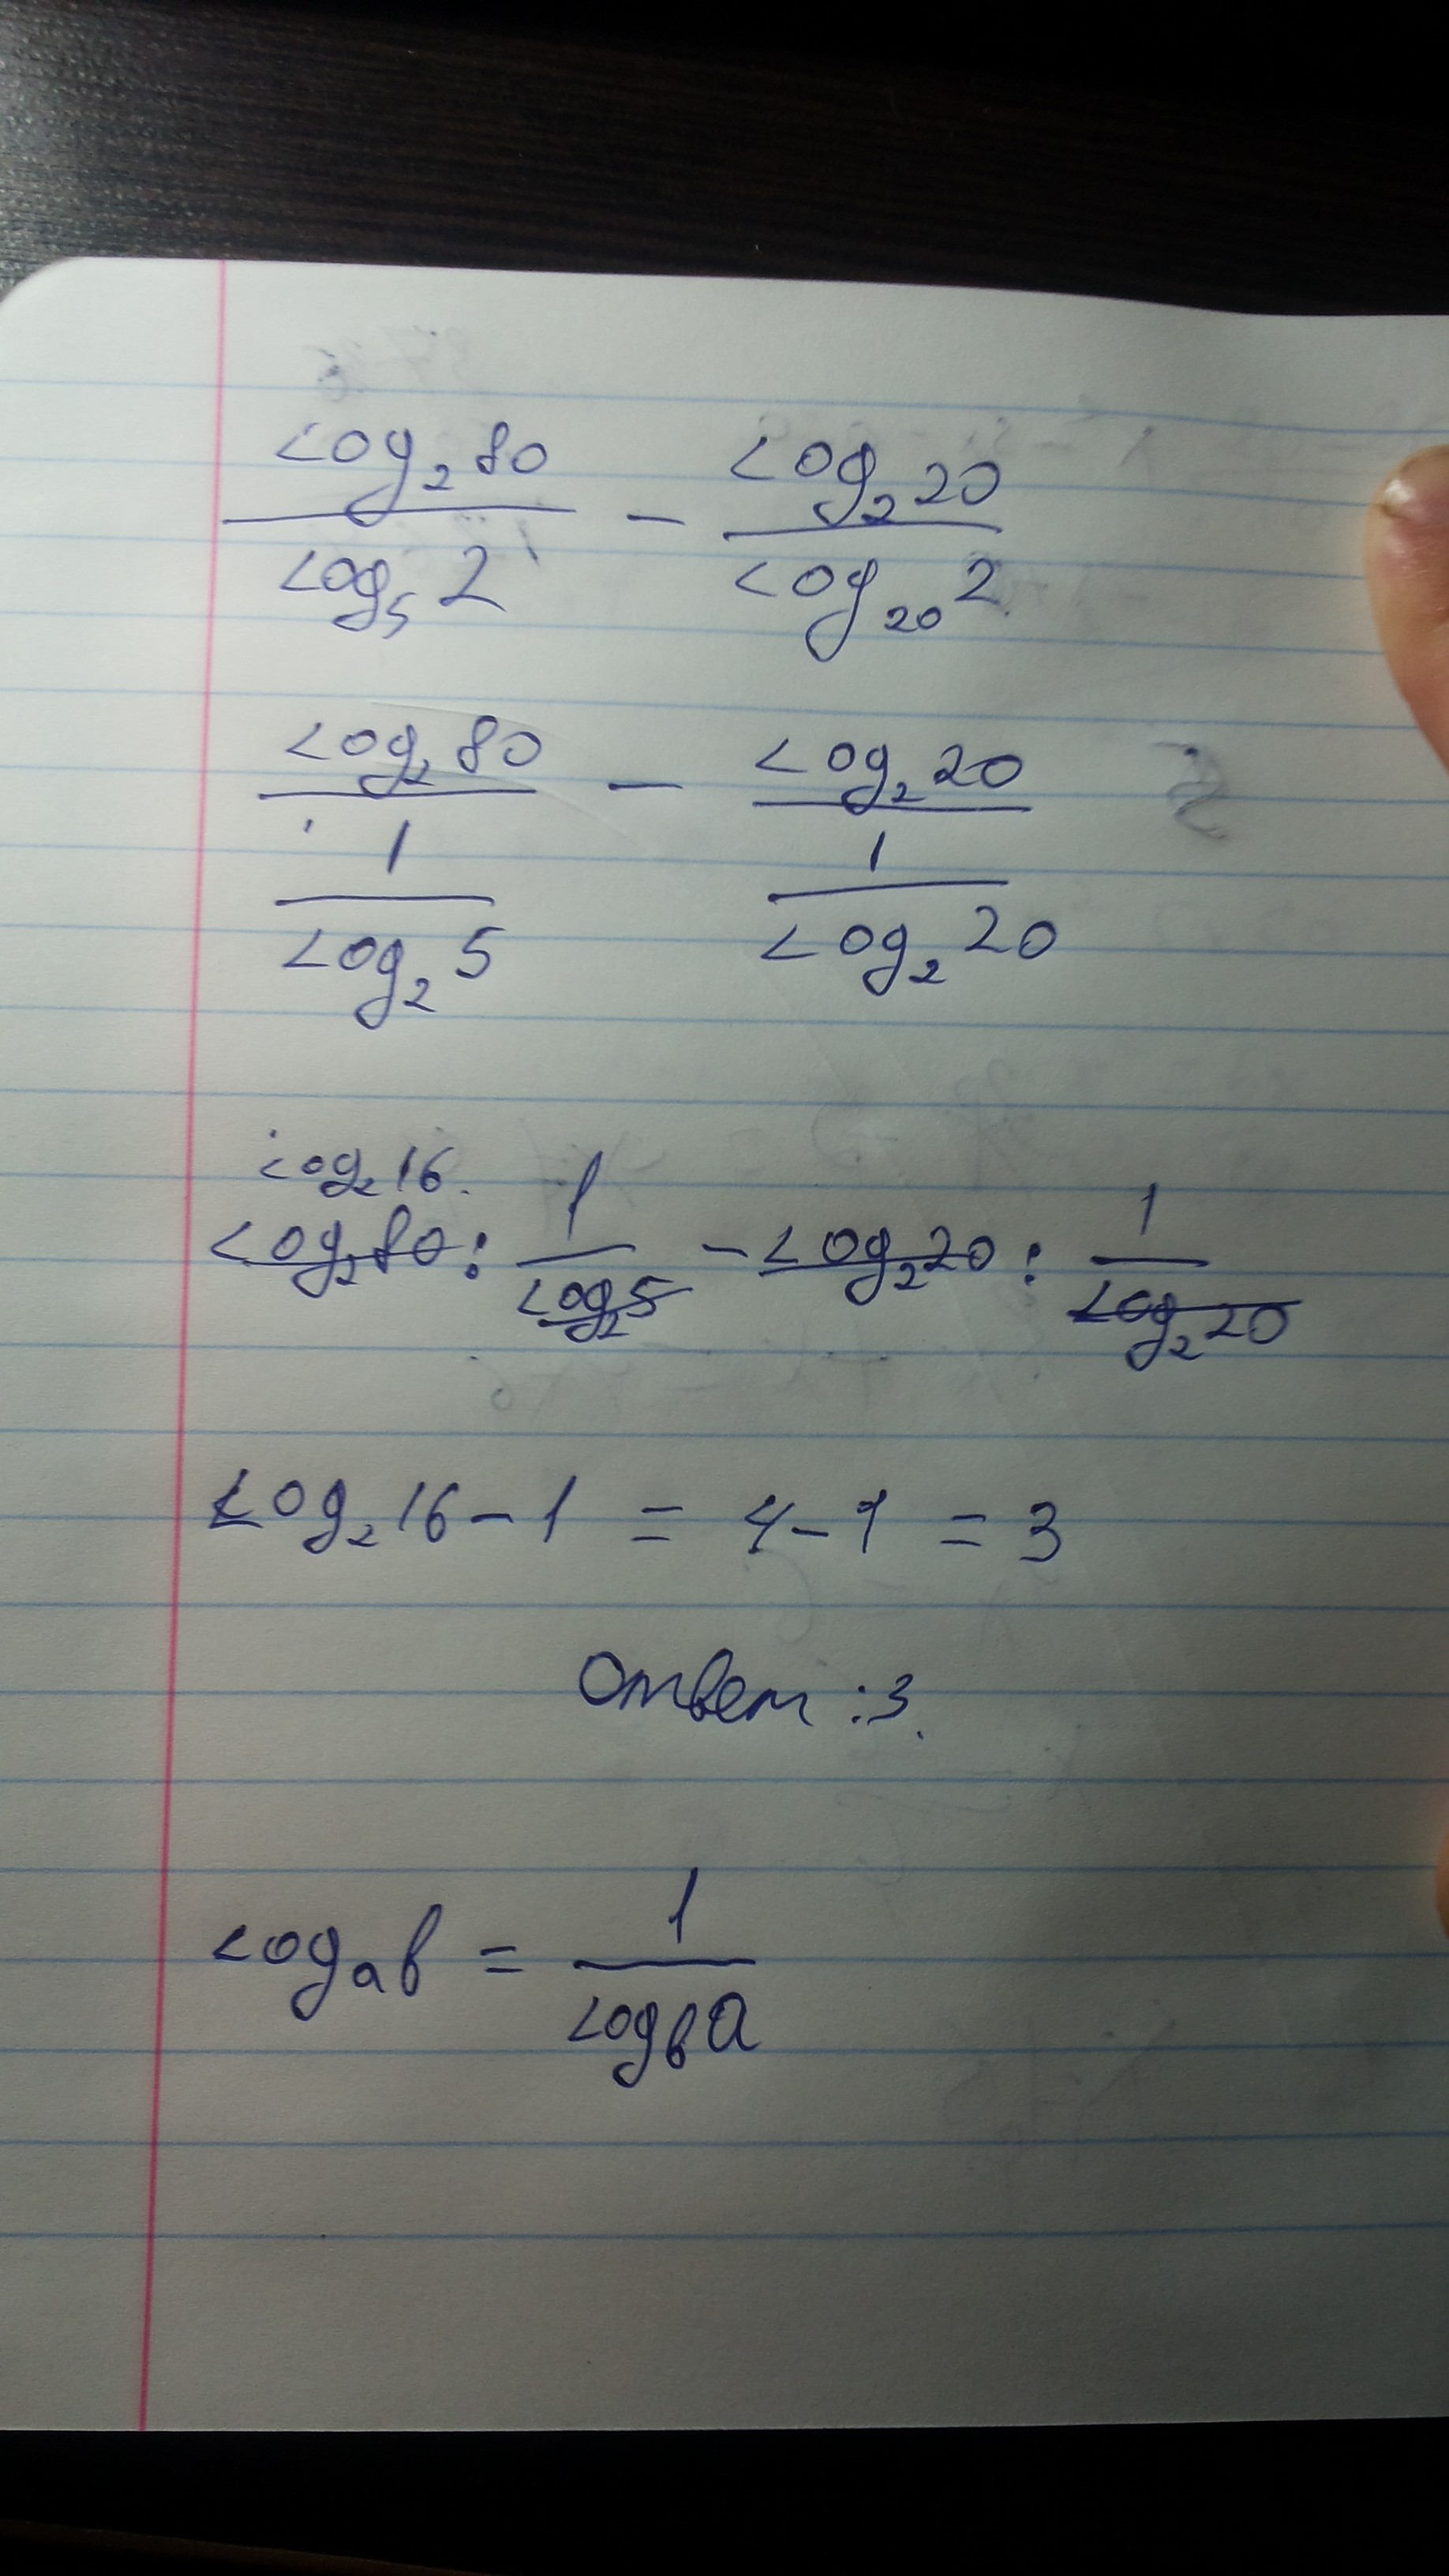 log₂80 / log₅2 − log₂20 / log₂₀2
log₂80 / (1 / log₂5) − log₂20 / (1 / log₂20)
log₂16.
log₂80 : 1 / log₂5 − log₂20 : 1 / log₂20
log₂16 − 1 = 4 − 1 = 3
Ответ : 3.
logₐb = 1 / log_b a